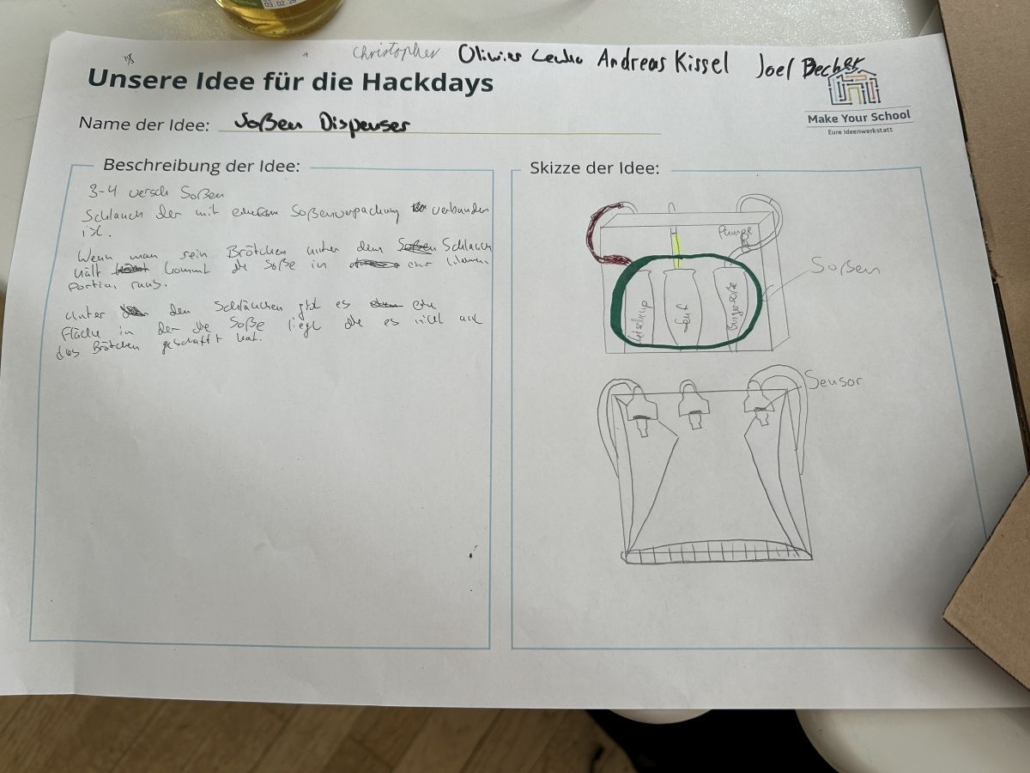 Christopher Olivier Andreas Kissel Joel Becher
Unsere Idee für die Hackdays
Make Your School
Eure Ideenwerkstatt
Name der Idee: Soßen Dispenser
Beschreibung der Idee:
3-4 versch Soßen
Schlauch der mit Soßenverpackung verbunden
ist.
Wenn man sein Brötchen unter dem Schlauch
hält kommt die Soße in einer kleinen
Portion raus.
unter den Schläuchen gibt es eine
Fläche in der die Soße liegt die es nicht auf
das Brötchen geschafft hat.
Skizze der Idee:
Pumpe
Soßen
Ketchup
Senf
Burgersoße
Sensor